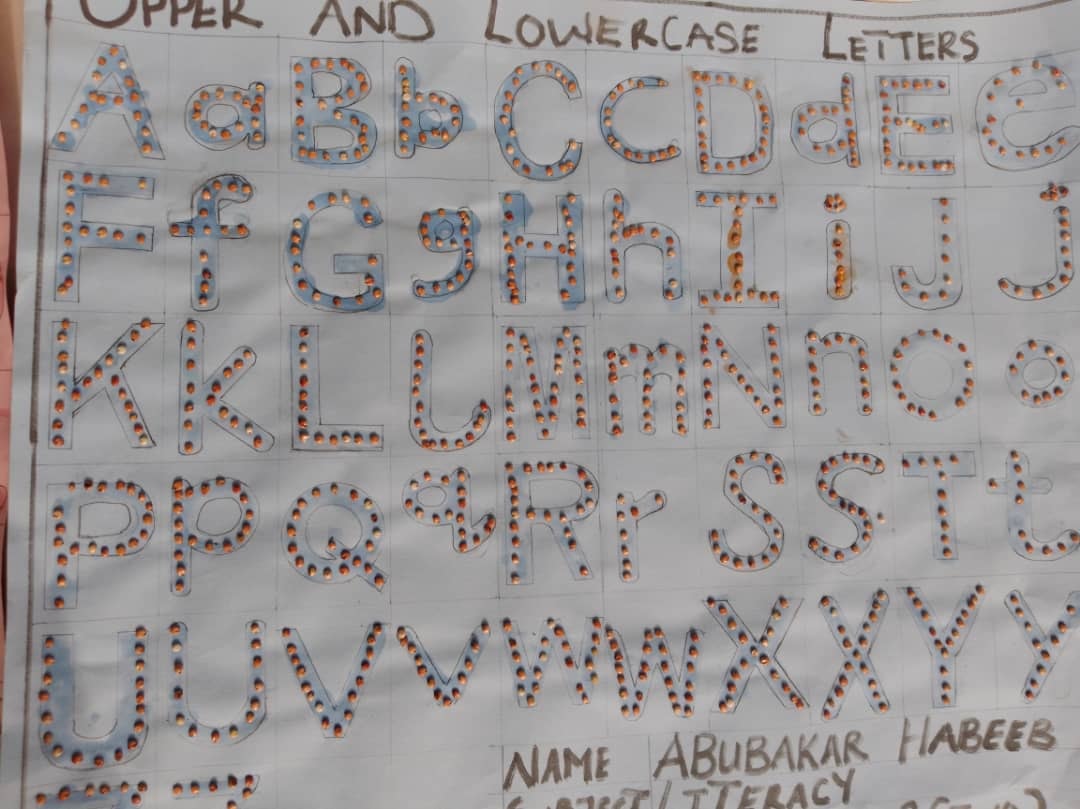 UPPER AND LOWERCASE LETTERS
A a B b C c D d E e
F f G g H h I i J j
K k L l M m N n O o
P p Q q R r S s T t
U u V v W w X x Y y
NAME ABUBAKAR HABEEB
SUBJECT LITERACY